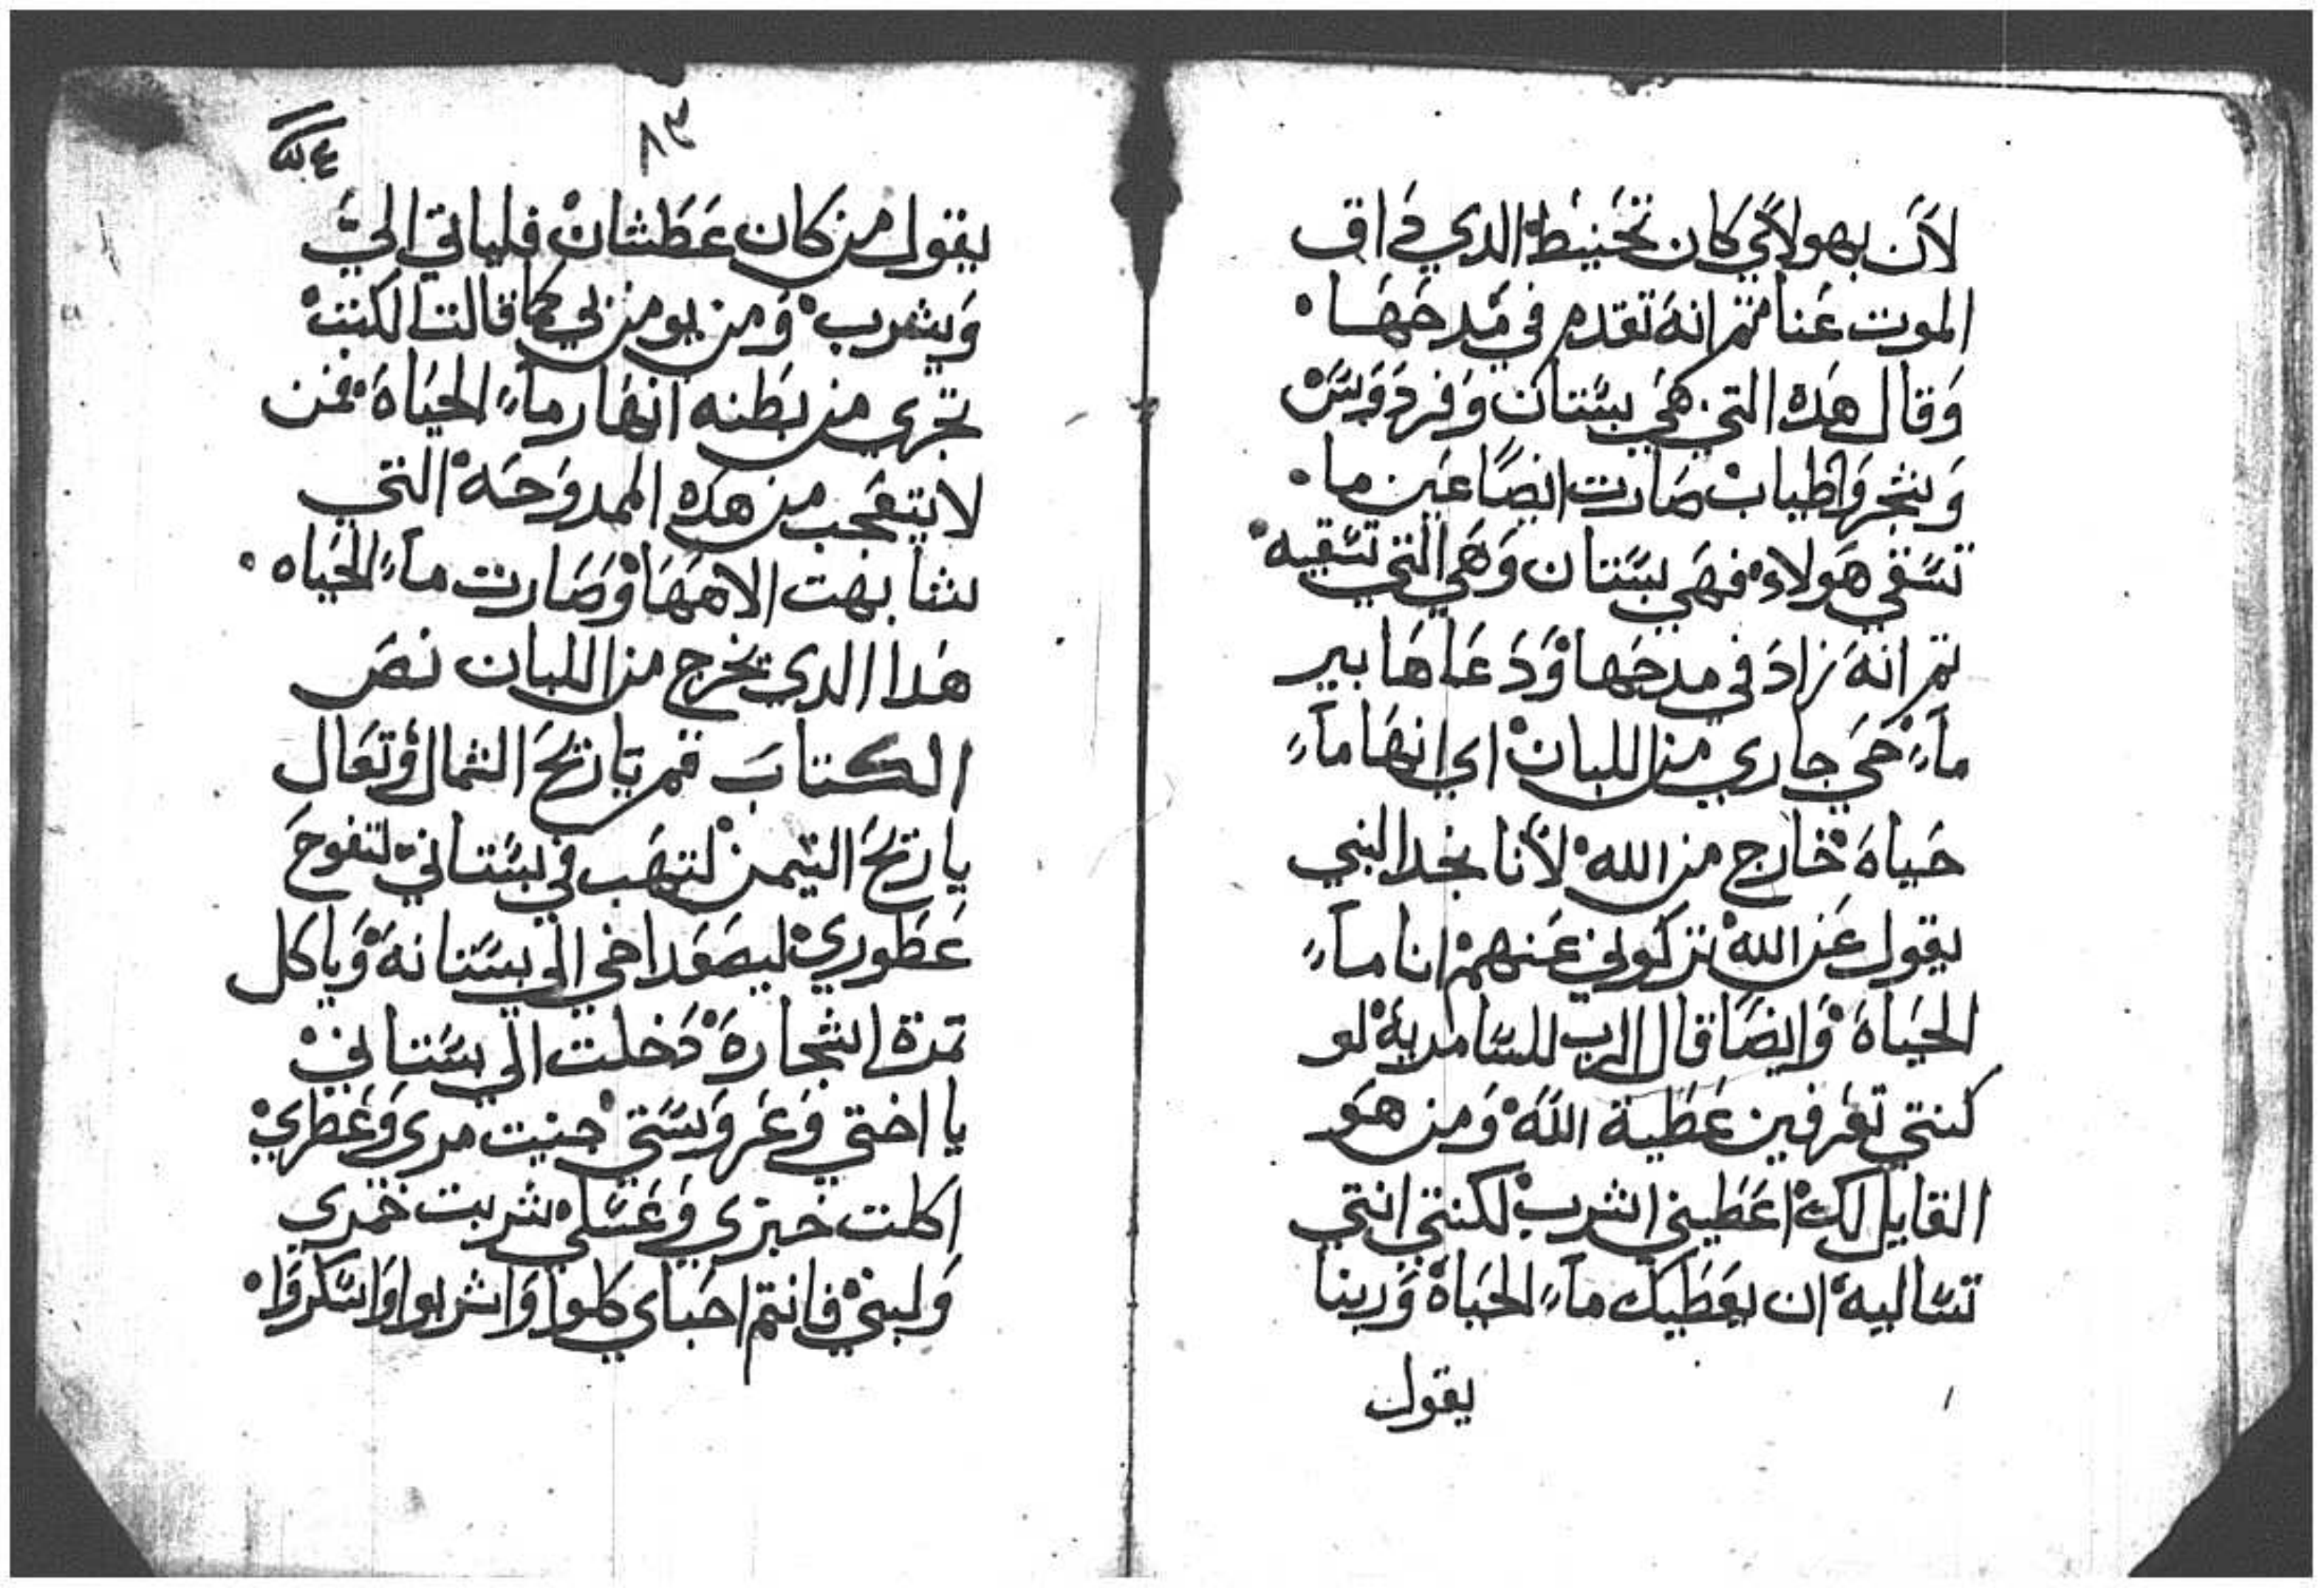 لاَن بهولاَي كان تحنيط الدي داق
الموت عنا ثم انه تقدم في مدحها
وقال هده التي هي بستان وفردوس
وشجر واطياب صارت ايضاً عين ما
تسقي هولاء فهي بستان وهي التي تسقيه
ثم انه زاد في مدحها ودعاها بير
مآء حي جاري من اللبان اي انها مآء
حياة خارج من الله لانا نجد النبي
يقول عن الله تركوني عنهم انا مآء
الحياة وايضا قال الرب للسامرية لو
كنتي تعرفين عطية الله ومن هو
القايل لك اعطيني اشرب لكنتي انتي
تساليه ان يعطيك مآء الحياة وربنا
يقول
٨٣
يقول من كان عطشان فلياتي اليَّ
ويشرب ومن يومن بي كما قالت الكتب
تجري من بطنه انهار مآء الحياة فمن
لا يتعجب من هده الممدوحة التي
شابهت الاهها وصارت مآء الحياه
هدا الدي يخرج من اللبان نص
الكتاب قم يا ريح الشمال وتعال
يا ريح التيمن لتهب في بستاني لتفوح
عطوري ليصعد اخي الي بستانه وياكل
تمرة اشجاره دخلت الي بستاني
يا اختي وعروستي جنيت مري وعطري
اكلت خبزي وعسلي شربت خمري
ولبني فانتم احباي كلوا واشربوا واسكروا